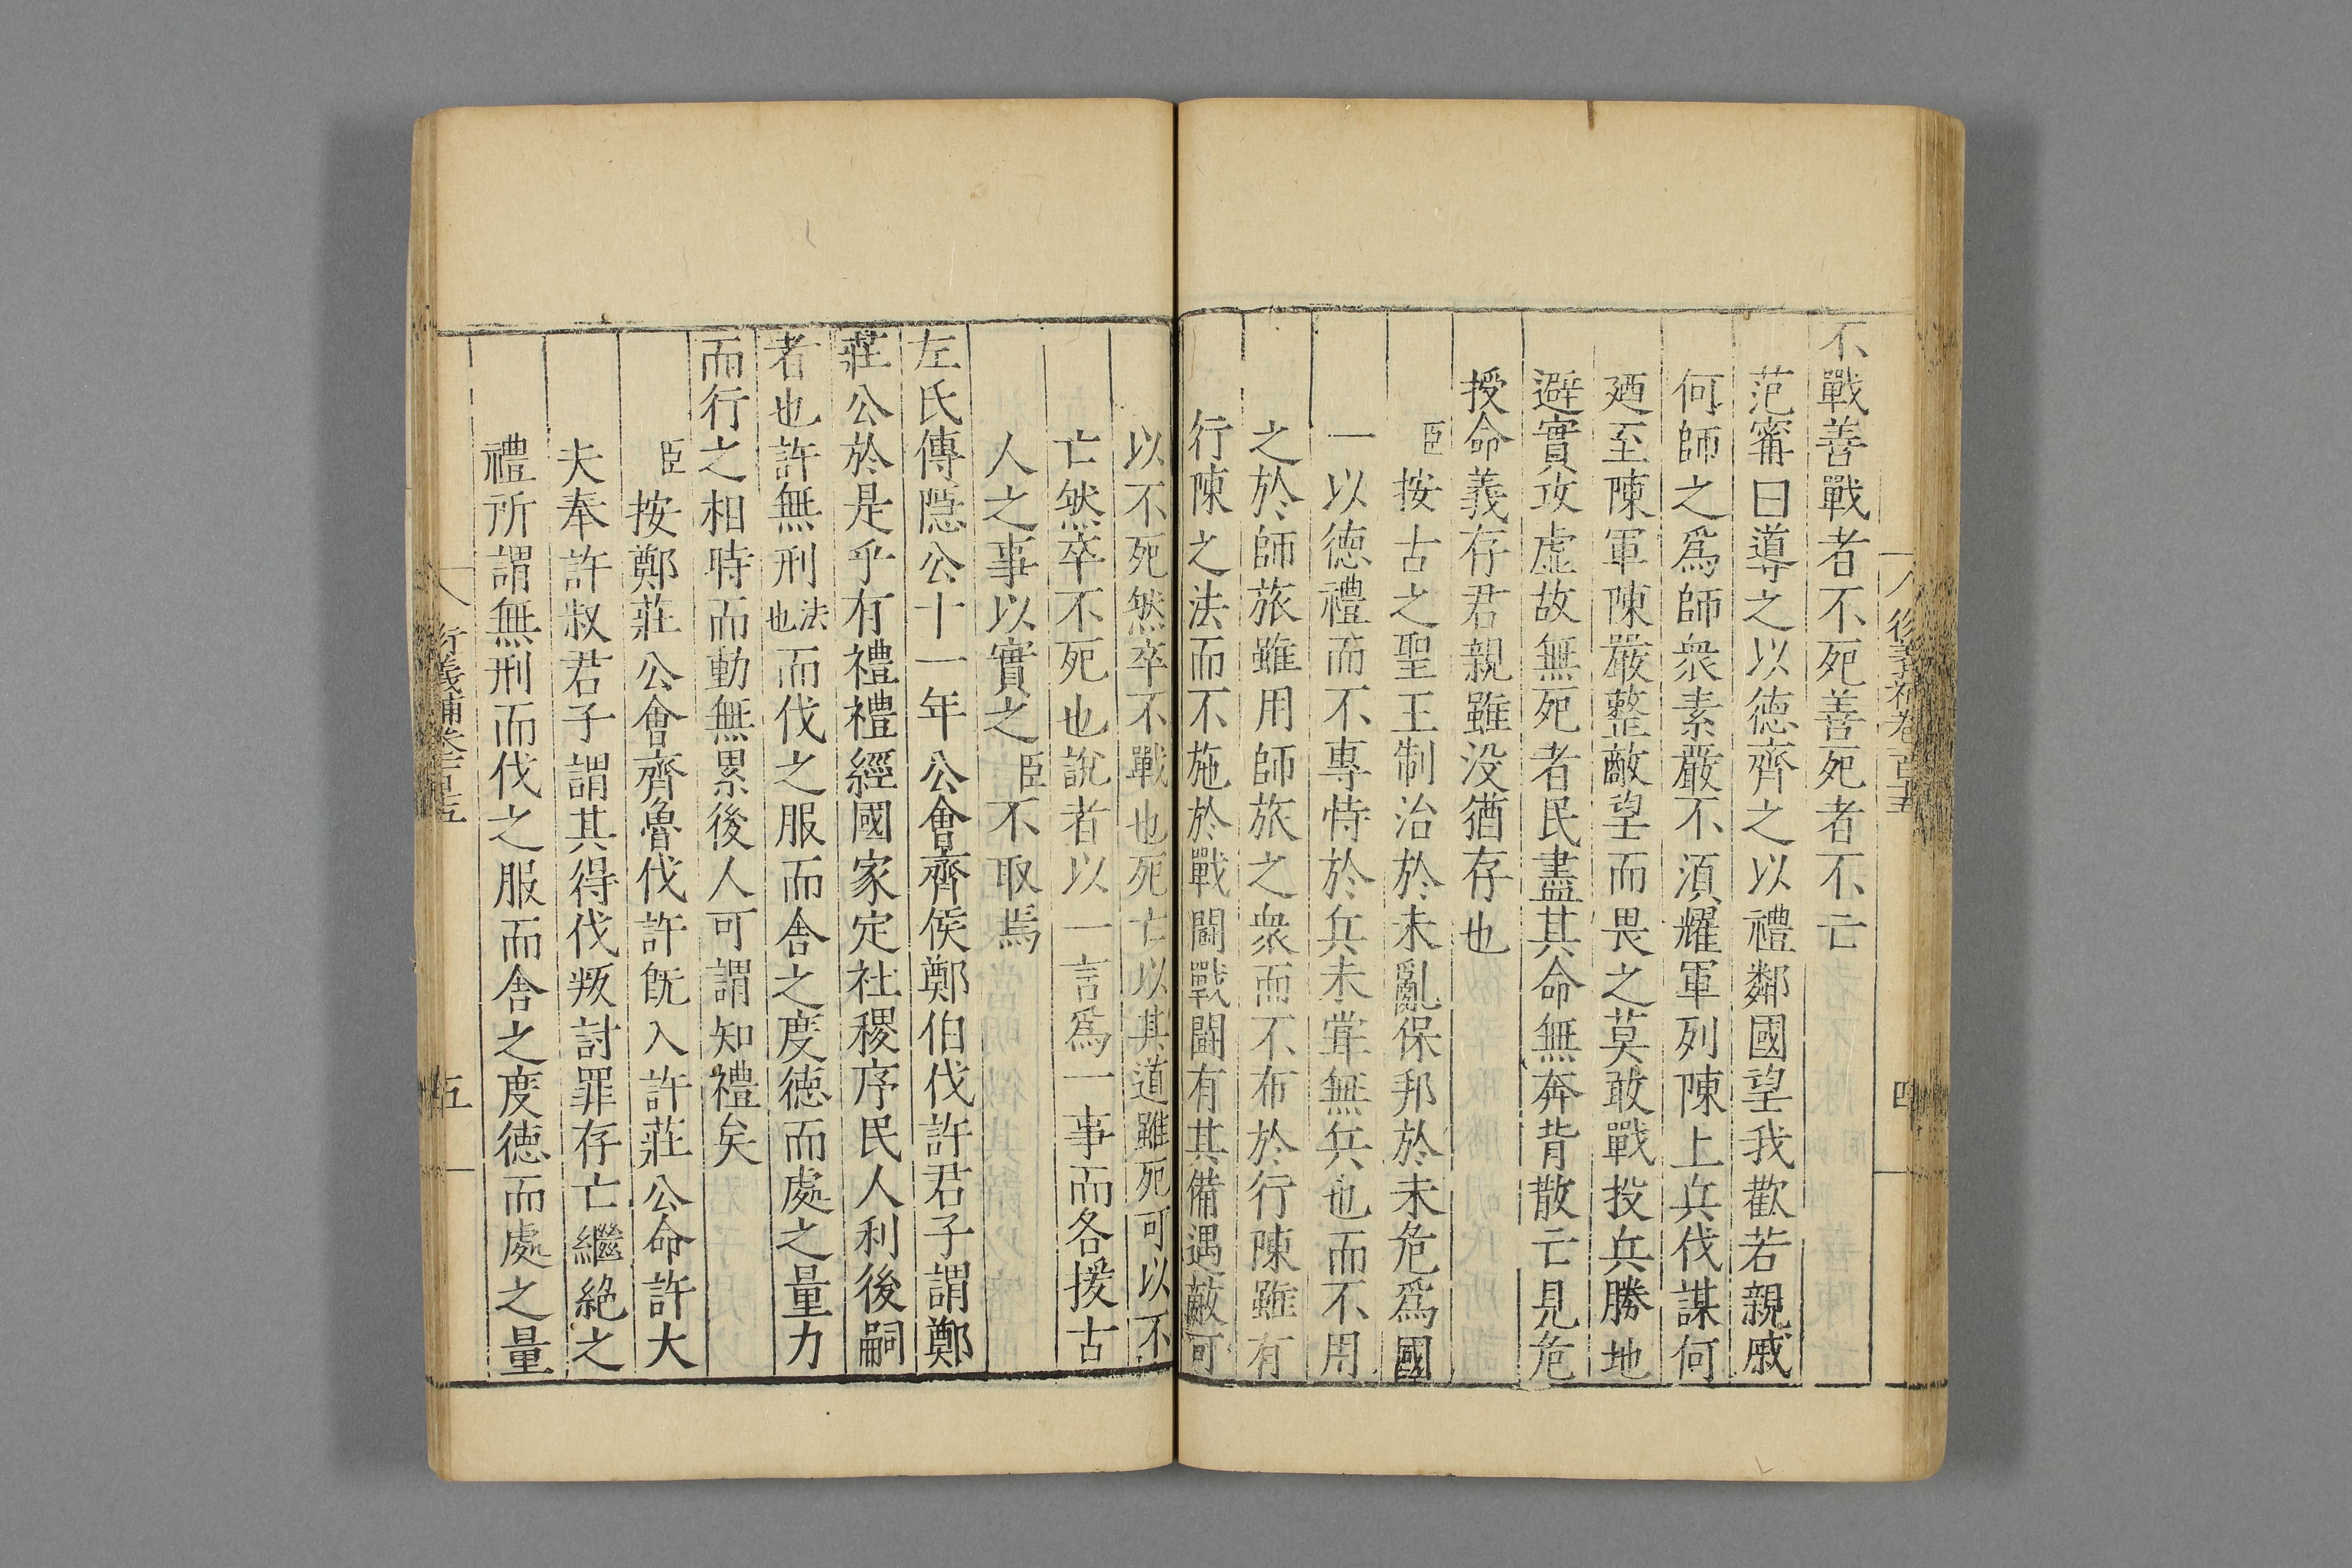 不戰善戰者不死善死者不亡
范甯曰導之以德齊之以禮鄰國望我歡若親戚
何師之爲師衆素嚴不須耀軍列陳上兵伐謀何
廼至陳軍陳嚴整敵望而畏之莫敢戰投兵勝地
避實攻虛故無死者民盡其命無奔背散亡見危
授命義存君親雖没猶存也
臣按古之聖王制治於未亂保邦於未危爲國
一以德禮而不專恃於兵未甞無兵也而不用
之於師旅雖用師旅之衆而不布於行陳雖有
行陳之法而不施於戰鬪戰鬪有其備遇敵可
以不死然卒不戰也死亡以其道雖死可以不
亡然卒不死也說者以一言爲一事而各援古
人之事以實之臣不取焉
左氏傳隱公十一年公會齊侯鄭伯伐許君子謂鄭
莊公於是乎有禮禮經國家定社稷序民人利後嗣
者也許無刑法也而伐之服而舍之度德而處之量力
而行之相時而動無累後人可謂知禮矣
臣按鄭莊公會齊魯伐許旣入許莊公命許大
夫奉許叔君子謂其得伐叛討罪存亡繼絶之
禮所謂無刑而伐之服而舍之度德而處之量
衍義補卷百五
五